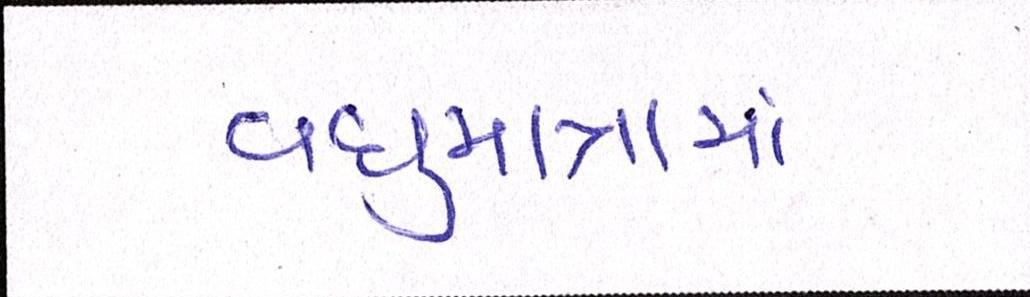 વધુમાત્રામાં